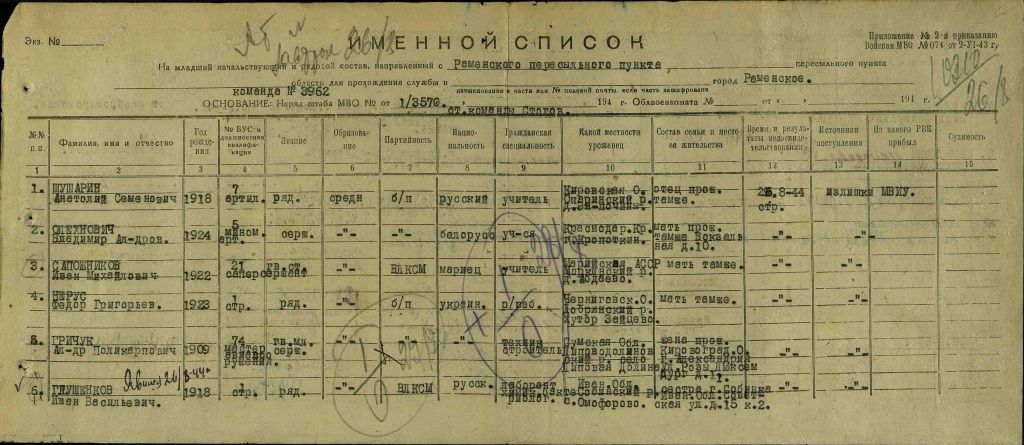 Экз. №
ИМЕННОЙ СПИСОК
Приложение № 2 к приказанию
Войскам МВО № 074 от 2-XI-43 г,
На младший начальствующий и рядовой состав, направленный с Раменского пересыльного пункта, пересыльного пункта
область для прохождения службы в город Раменское.
команда № 3962
наименование в части или № полевой почты, если часть зашифрована
ОСНОВАНИЕ: Наряд штаба МВО № от 1/3570. 194 г. Облвоенкомата № от 194 г.
ст.команды
26/8
№№ п.п. Фамилия, имя и отчество Год рождения № ВУС и должностная квалификация Звание Образование Партийность Национальность Гражданская специальность Какой местности уроженец Состав семьи и место ее жительства Время и результаты медосвидетельствования Источники поступления Из какого РВК прибыл Судимость
1 2 3 4 5 6 7 8 9 10 11 12 13 14 15
1. ШУШАРИН 7 Кировская О. отец прож. 8-44 излишки МВИУ.
Анатолий Семенович 1918 артил. ряд. средн б/п русский учитель Опаринский р. тамже. стр.
2. ОЛЕХНОВИЧ 5 Краснодар.Кр. мать прож.
Владимир Ал-дров. 1924 мином. серж. -"- -"- белорусс уч-ся г.Кропоткин. тамже Вокзаль -"- -"-
арт. ная д.10.
3. САПОЖНИКОВ 21 гв.ст. Марийская АССР мать тамже.
Иван Михайлович 1922 сапер сержант -"- ВЛКСМ мариец учитель Моркинский р. -"- -"-
4. НЕРУС 1 Черниговск.О. мать тамже.
Федор Григорьев. 1923 стр. ряд. -"- б/п украин. р/раб. Добрянский р. -"- -"-
хутор Зайцево.
5. ГРИЧУК 74 гв.мл. техник Сумская Обл. жена прож.
Ал-др Поликарпович 1909 мастер серж. -"- -"- -"- строитель Липоводолинский р. село Кировоград.О. -"- -"-
Липовая Долина ул.Розы Люксем
бург д.11.
6. ГЛУШЕНКОВ 1 русск. лаборант Иван.Обл. сестра г.Собинка
Иван Васильевич. 1918 стр. ряд. -"- ВЛКСМ Собинский р. Иван.Обл. -"- -"-
с.Омофорово. ская ул.д.15 к.2.